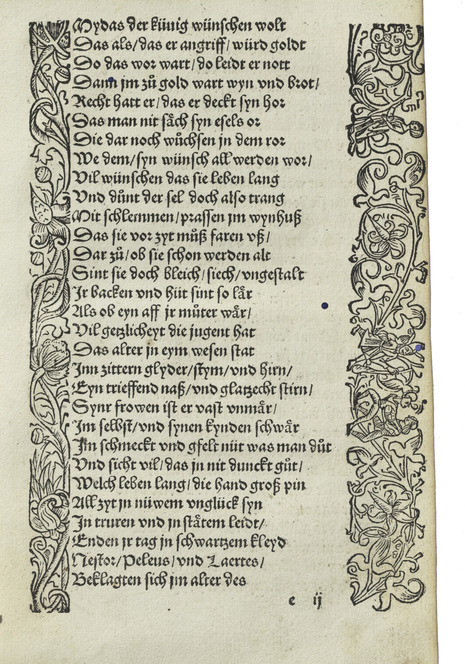 Mydas der künig wünschen wolt
Das als/das er angriff/würd goldt
Do das wor wart/do leidt er nott
Dann jm zů gold wart wyn vnd brot/
Recht hatt er/das er deckt syn hor
Das man nit säch syn esels or
Die dar noch wůchsen in dem ror
We dem/syn wünsch all werden wor/
Vil wünschen das sie leben lang
Vnd dünt der sel doch also trang
Mit schlemmen/prassen jm wynhuß
Das sie vor zyt můß faren vß/
Dar zů/ob sie schon werden alt
Sint sie doch bleich/siech/vngestalt
Ir backen vnd hüt sint so lär
Als ob eyn aff jr můter wär/
Vil getzlicheyt die jugent hat
Das alter in eym wesen stat
Inn zittern glyder/stym/vnd hirn/
Eyn trieffend naß/vnd glatzecht stirn/
Synr frowen ist er vast vnmär/
Im selbst/vnd synen kynden schwär
Im schmeckt vnd gfelt nüt was man důt
Vnd sicht vil/das jn nit dunckt gůt/
Welch leben lang/die hand groß pin
All zyt jn nüwem vnglück syn
In truren vnd jn stätem leidt/
Enden jr tag jn schwartzem kleyd
Nestor/Peleus/vnd Laertes/
Beklagten sich jm alter des
e ij